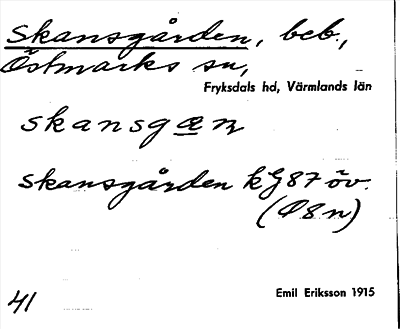 Skansgården, beb.,
Östmarks sn,
Fryksdals hd, Värmlands län
skansgæn
Skansgården kG87 öv.
(Ø8n)
41
Emil Eriksson 1915